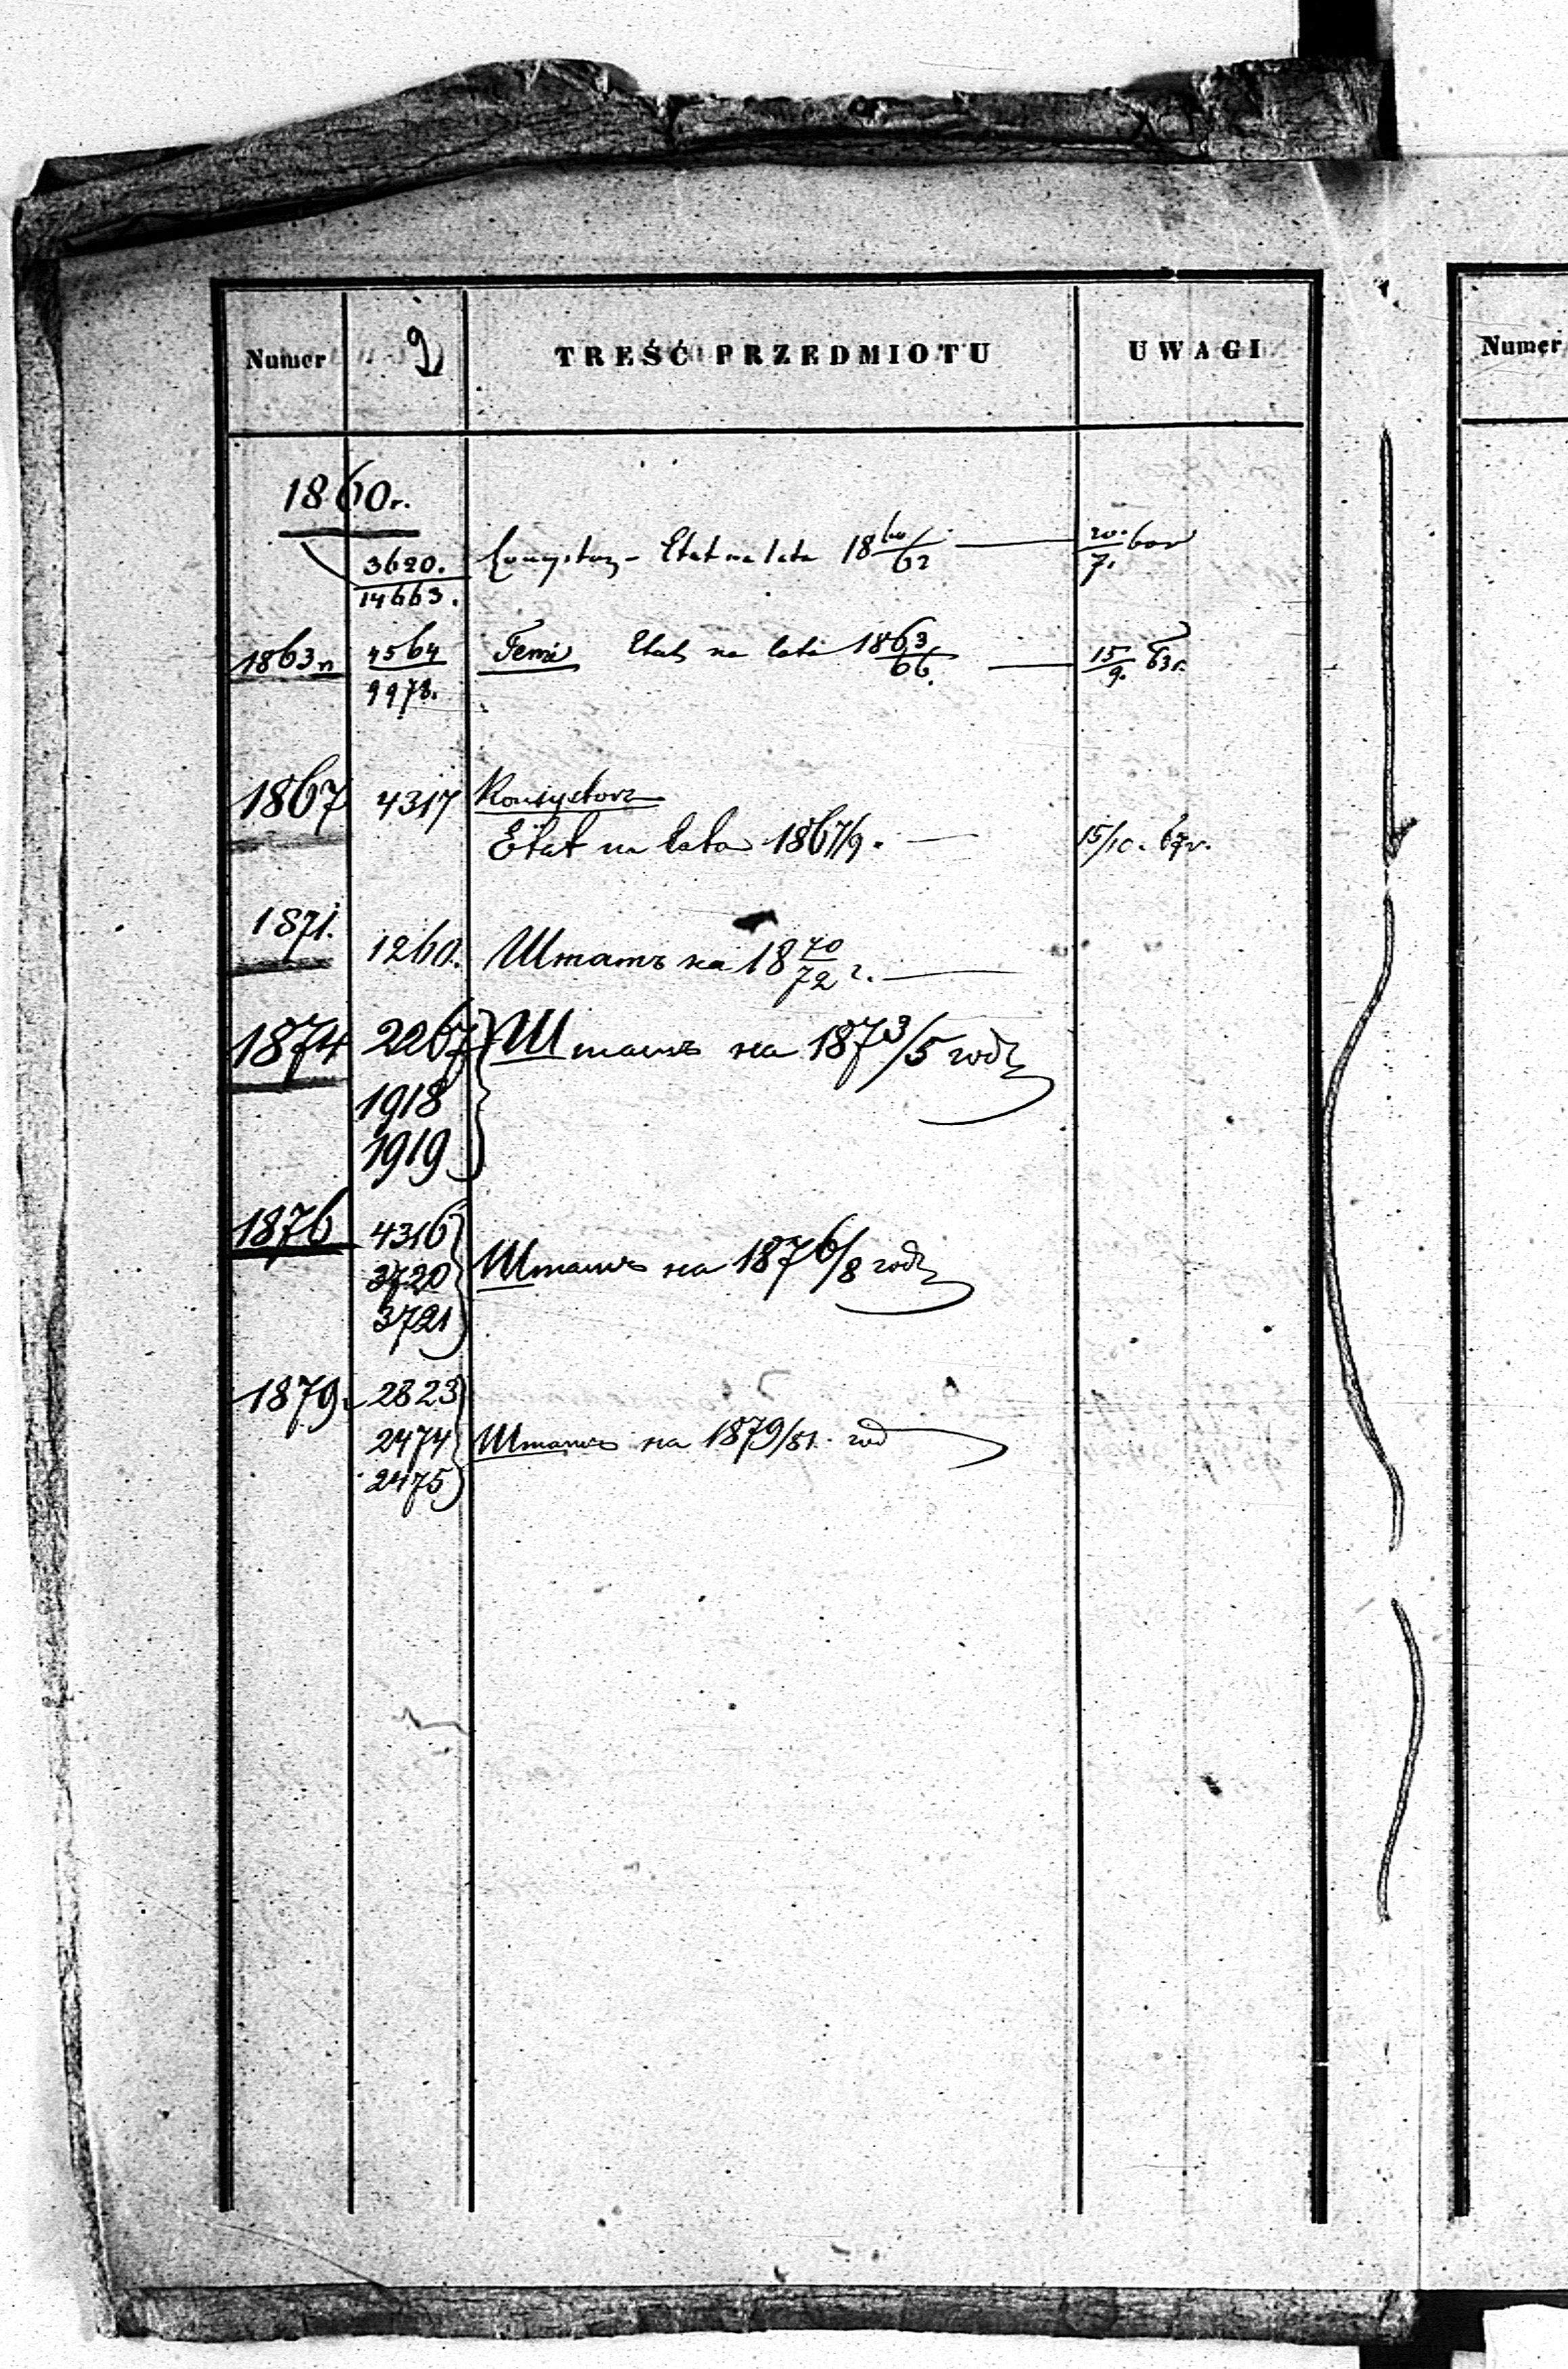 Numer 9 TREŚĆ PRZEDMIOTU UWAGI Numer
1860r.
3620. Etat na lata 18 60/62 20/7. 60r
14663.
1863r 4564 Etat na lata 1863/66. 15/9. 63r.
9978.
1867 4317 Konsystorz
Etat na lata 1867/9. 15/10. 67r.
1871. 1260. Штатъ на 18 70/72 г.
1874 2267 Штатъ на 1873/5 годъ
1918
1919
1876 4316
3720 Штатъ на 1876/8 годъ
3721
1879. 2823
2474 Штатъ на 1879/81. год
2475